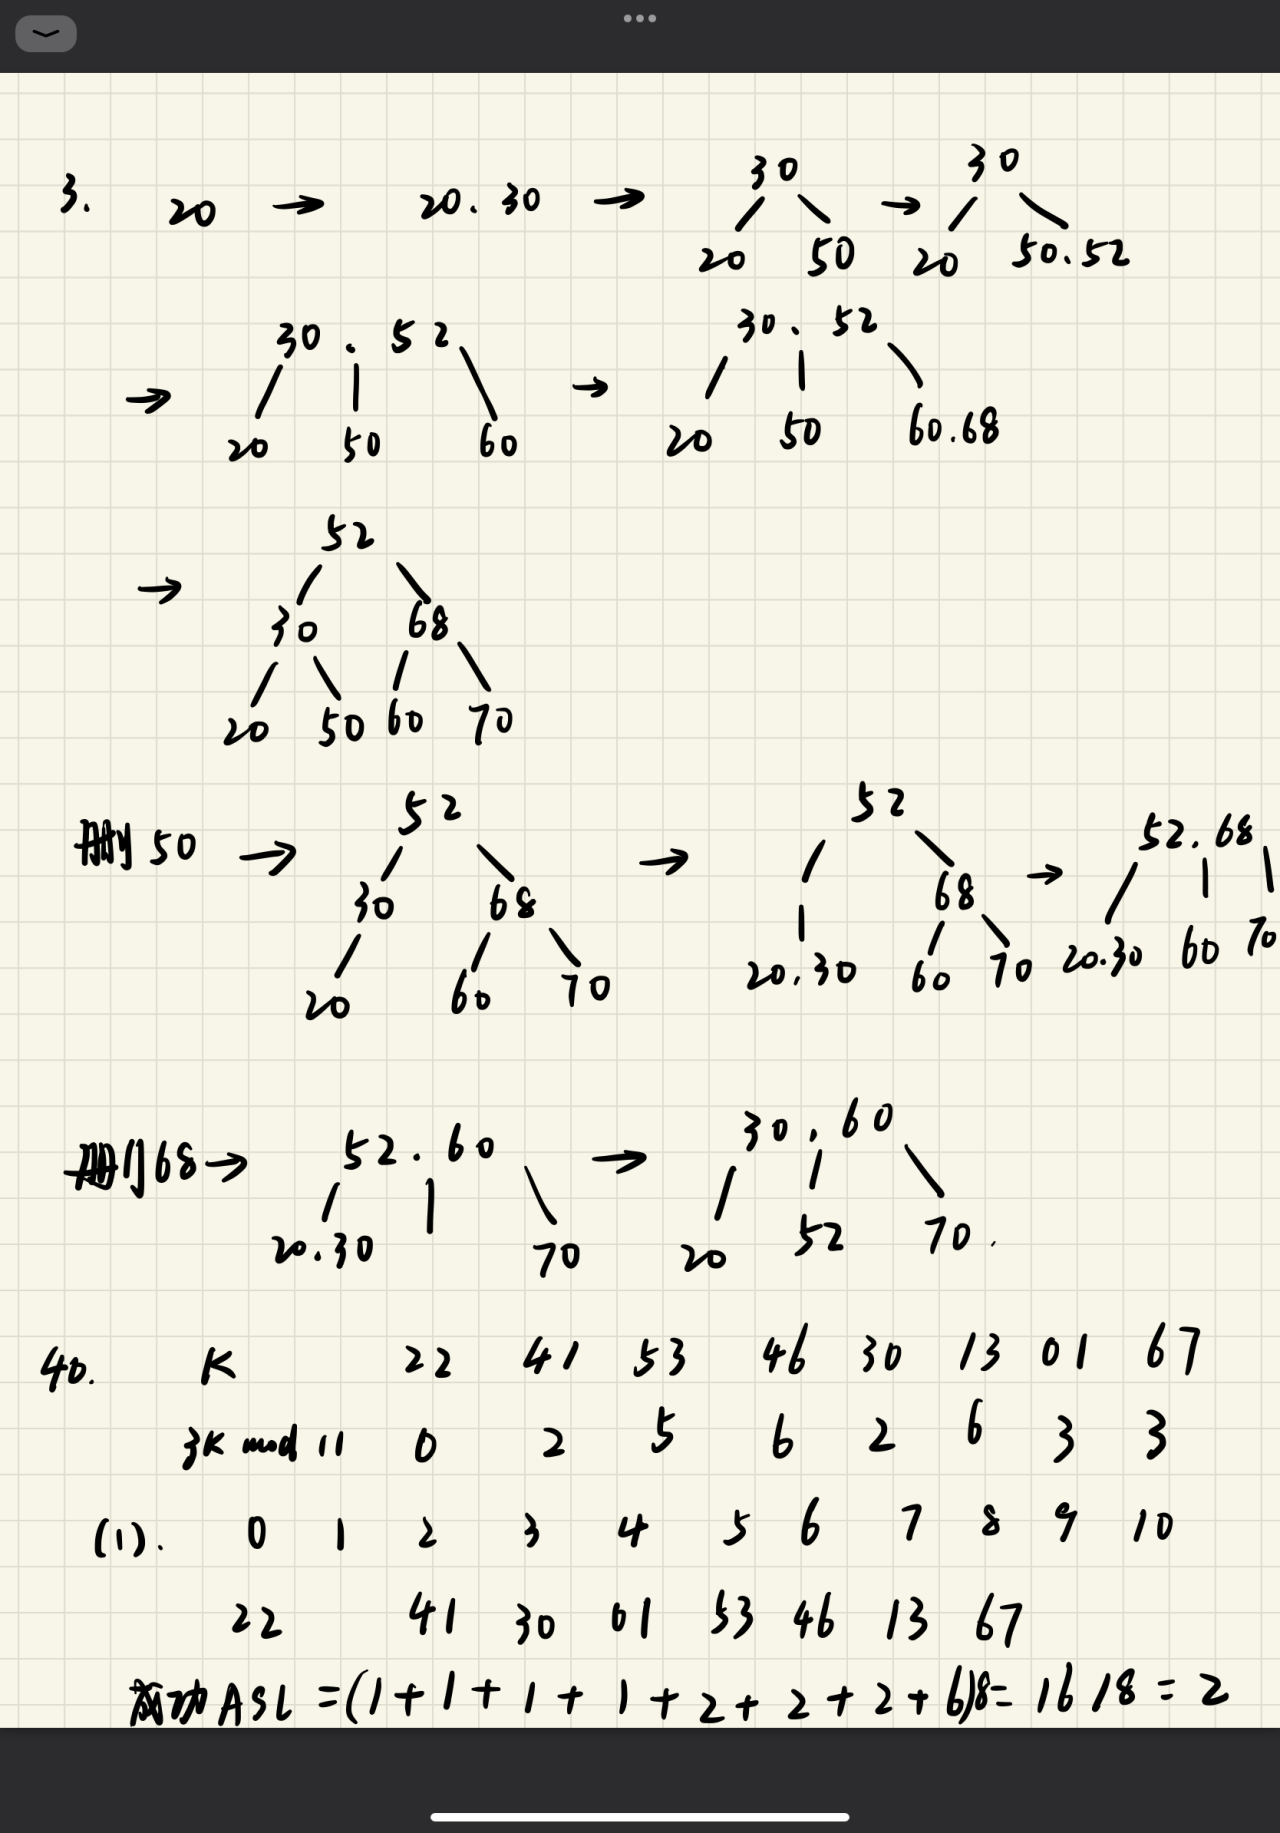 3. 20 → 20.30 → 30 → 30
20 50 20 50.52
→ 30.52 → 30.52
20 50 60 20 50 60.68
→ 52
30 68
20 50 60 70
删 50 → 52 → 52 → 52.68
30 68 68
20 60 70 20.30 60 70 20.30 60 70
删 68 → 52.60 → 30.60
20.30 70 20 52 70.
40. K 22 41 53 46 30 13 01 67
3K mod 11 0 2 5 6 2 6 3 3
(1). 0 1 2 3 4 5 6 7 8 9 10
22 41 30 01 53 46 13 67
成功ASL=(1+1+1+1+2+2+2+6)8=16/8=2